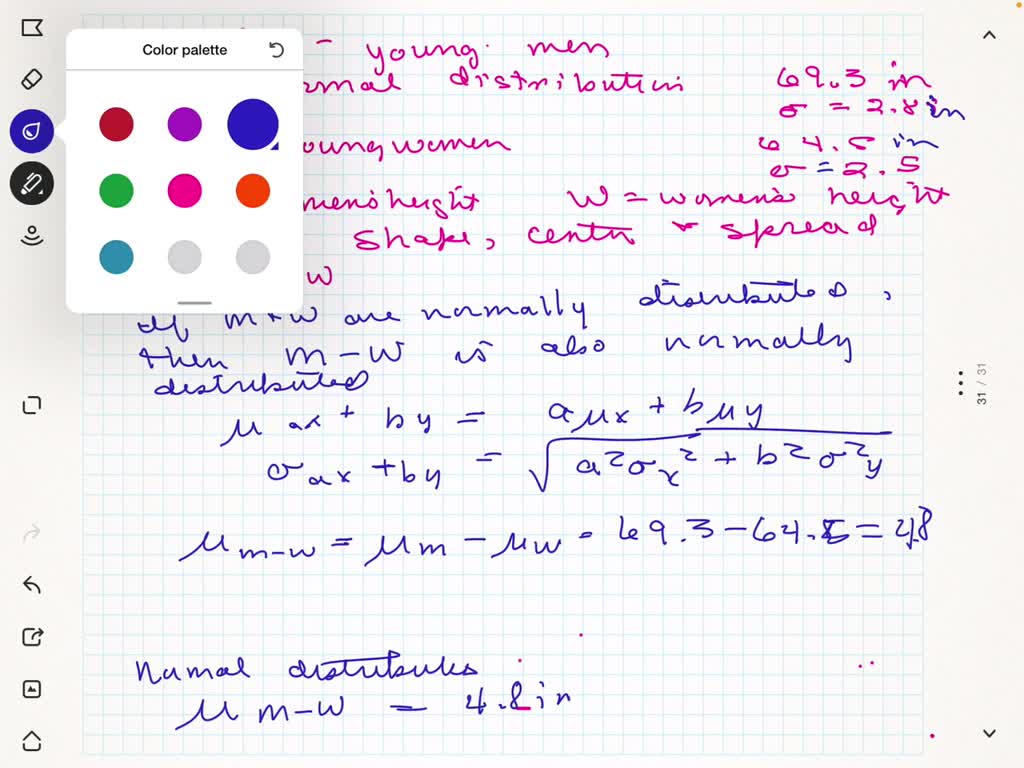 Color palette
– young men
rmal distribution 69.3 in
σ = 2.8 in
oung women 64.5 in
σ = 2.5
men's height W = women's height
shape, centr & spread
W
If M & W are normally distributed,
then M – W is also normally
distributed
μ ax + by = a μx + b μy
σ ax + by = √a²σx² + b²σ²y
μ m-w = μm – μw = 69.3 – 64.5 = 4.8
31 / 31
Normal distributes
μ m-w = 4.8 in